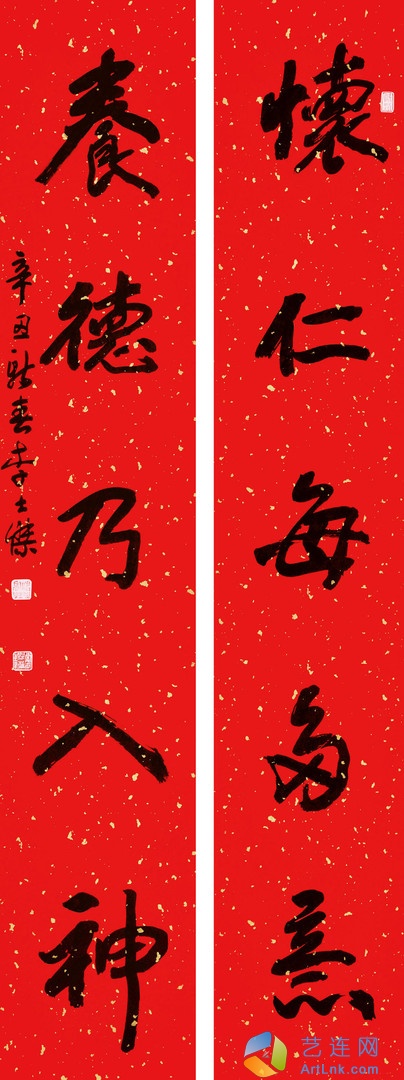 懷仁每多意
養德乃入神
辛丑新春李士傑
艺连网
ArtLnk.com